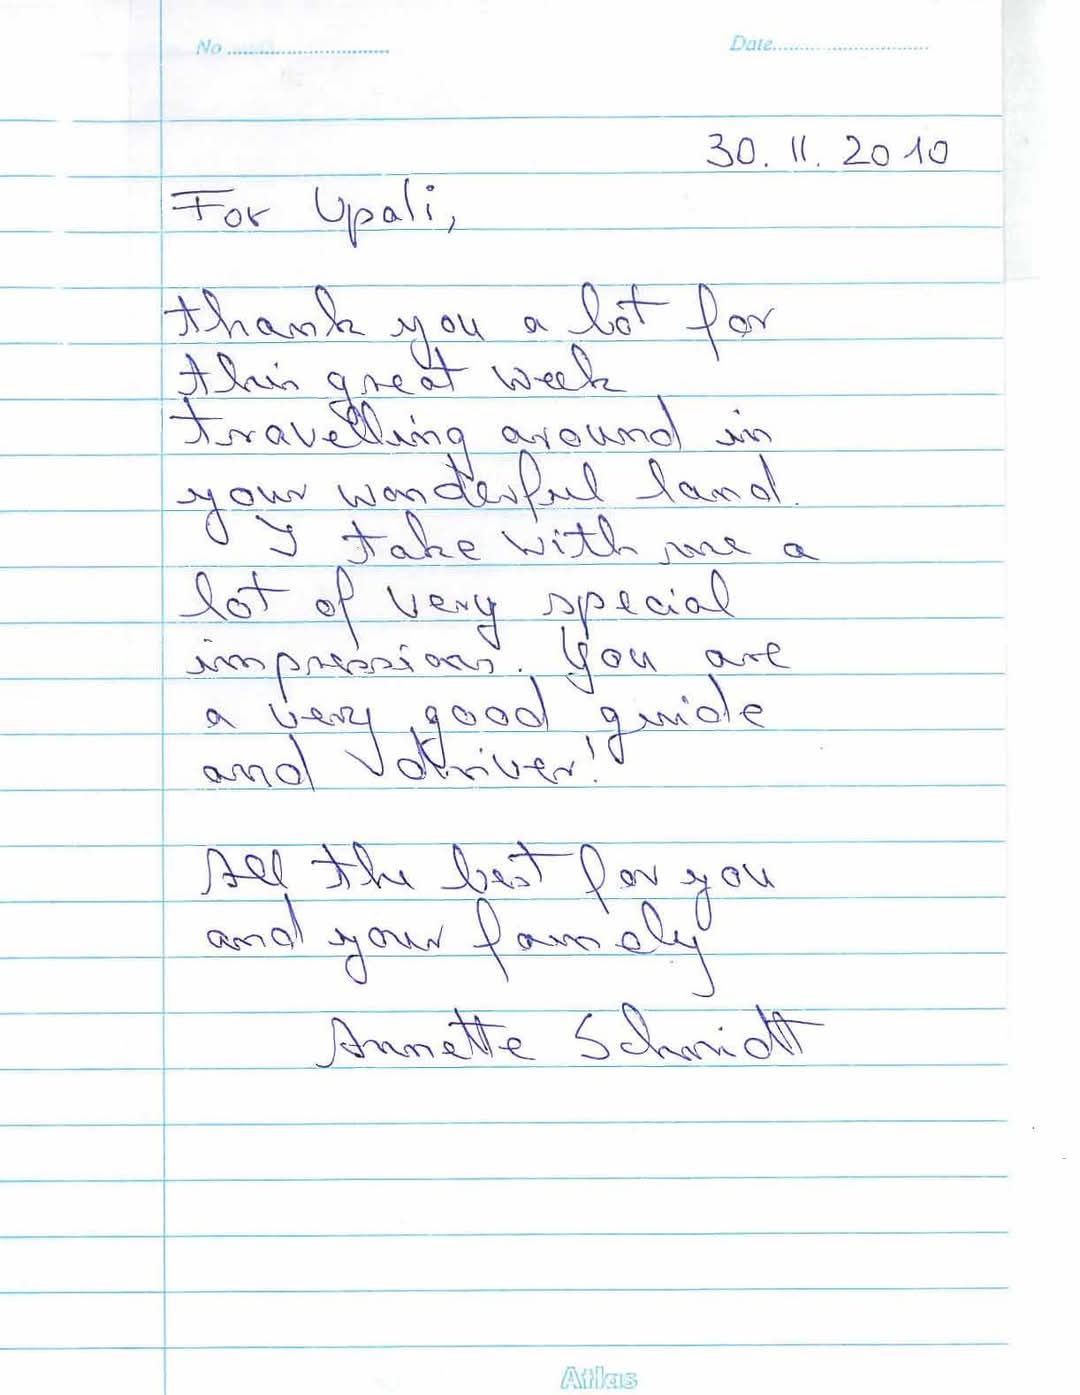 No ........................... Date............................
30. 11. 2010
For Upali,
thank you a lot for
this great week
travelling around in
your wonderful land.
I take with me a
lot of very special
impressions. You are
a very good guide
and driver!
All the best for you
and your famely
Annette Schmidt
Atlas